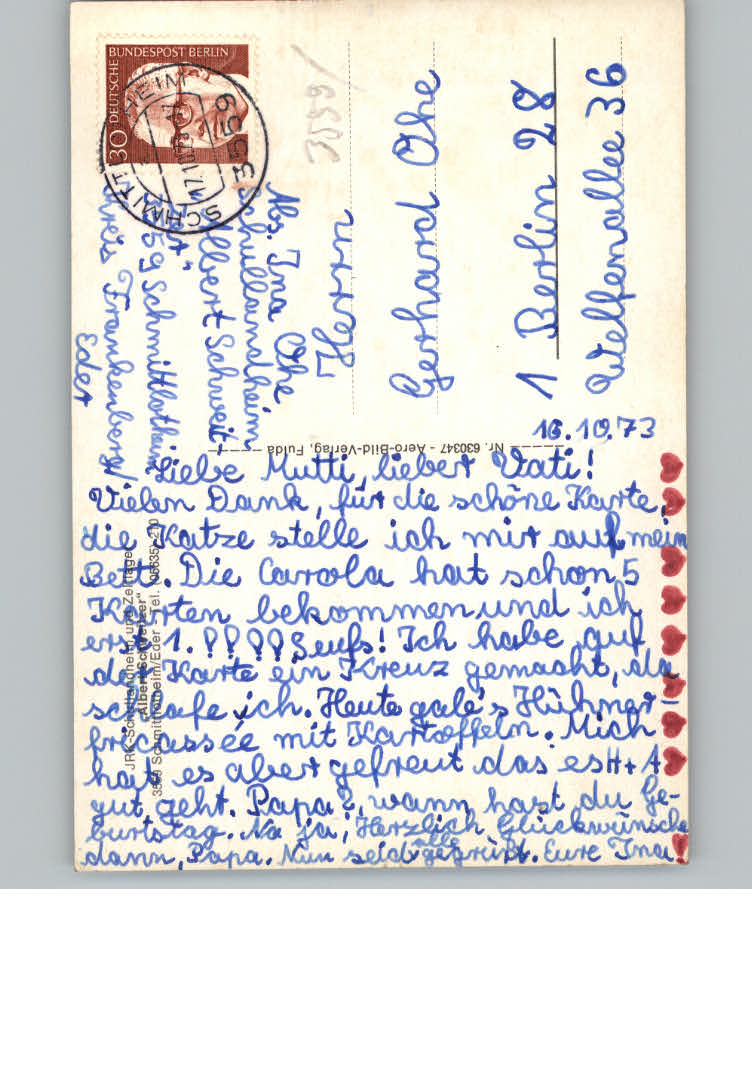 DEUTSCHE BUNDESPOST BERLIN
30
3559
17.10.73
3559/
Abs. Ina Ohe
Schullandheim
"Albert Schweit-
zer"
359 Schmittlotheim
Kreis Frankenberg/
Eder
Herrn
Gerhard Ohe
1 Berlin 28
Welfenallee 36
Nr. 630347 - Aero-Bild-Verlag, Fulda
JRK-Schullandheim und Zeltlager
"Albert Schweitzer"
3559 Schmittlotheim/Eder Tel. (06635) 210
16.10.73
Liebe Mutti, lieber Vati!
Vielen Dank, für die schöne Karte,
die Katze stelle ich mir auf mein
Bett. Die Carola hat schon 5
Karten bekommen und ich
erst 1. ???? Seufs! Ich habe auf
der Karte ein Kreuz gemacht, da
schlafe ich. Heute gab's Hühner-
fricassée mit Kartoffeln. Mich
hat es aber gefreut das es H+A
gut geht. Papa?, wann hast du Ge-
burtstag. Na ja, Herzlich Glückwünsche
dann, Papa. Nun seid alle gegrüßt. Eure Ina!